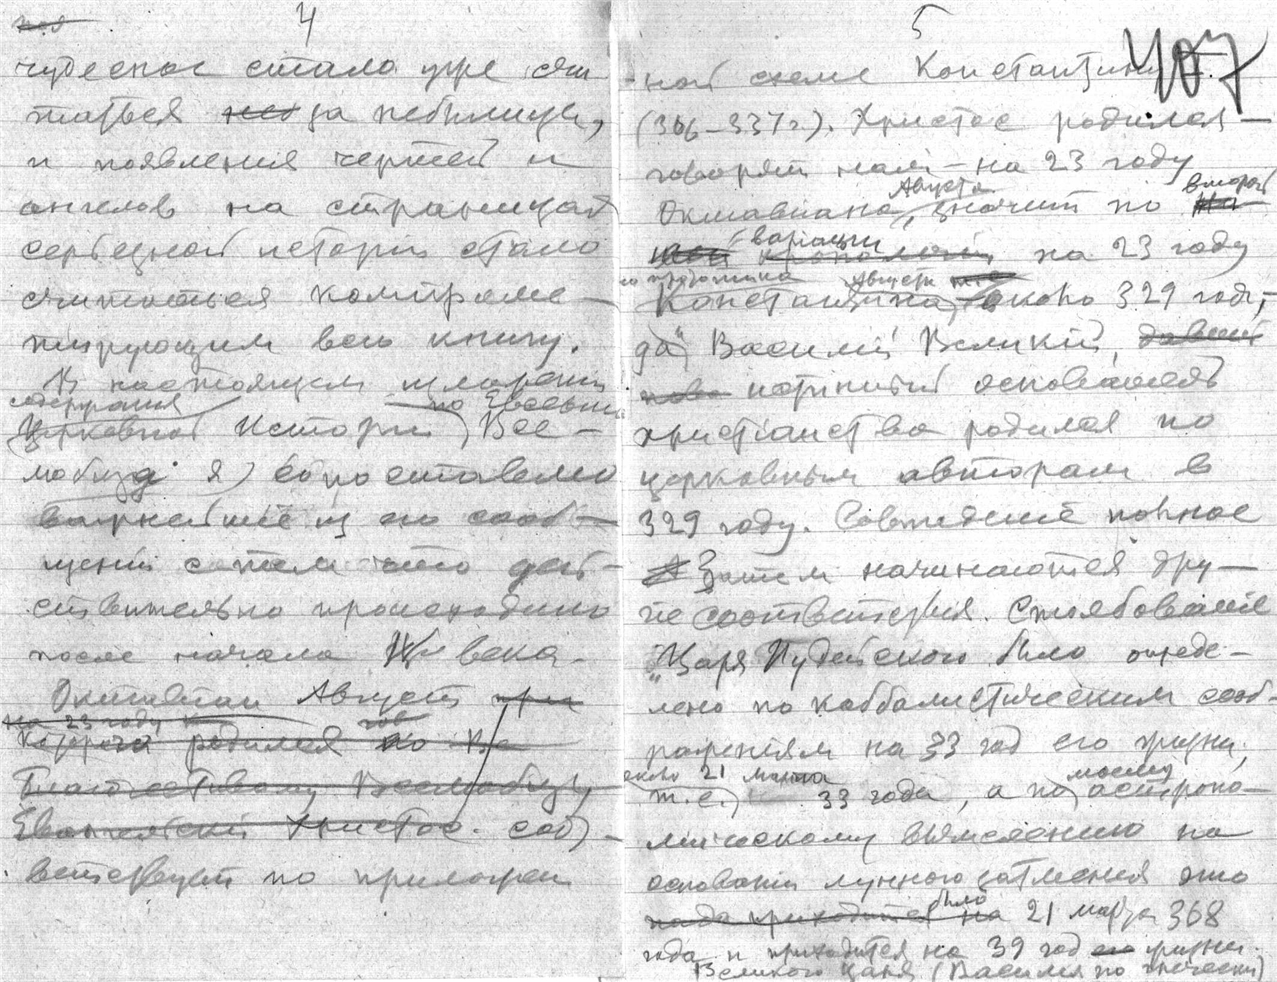 4
чудесное стало уже счи
таться за небылицу,
и появления чертей и
ангелов на страницах
серьезной истории стало
считаться компроме-
тирующим весь книгу.
В настоящем
содержания по Евсевию
Церковной Истории Все-
сопоставлено
важнейшие из его сооб-
щений с тем что дей-
ствительно происходило
после начала века.
Октавиан Август при
на 23 году
которого родился по
Благочестивому
Евангельский Христос. соо
ветствует по приложен
5
407
-ной схеме Константину I.
(306-337 г.). Христос родился -
говорят нам - на 23 году
Августа второй
Октавиана, значит по
вариации на 23 году
прототипа Августа
Константина, около 329 года, -
да Василий Великий,
истинный основатель
христианства родился по
церковным авторам в
329 году. Совпадение полное
Затем начинаются дру-
гие соответствия. Столбование
"Царя Иудейского было опреде-
лено по каббалистическим сооб-
ражениям на 33 год его жизни,
около 21 марта моему
т.е. 33 года, а по астроно-
мическому вычислению на
основании лунного затмения это
было
надо приходится на 21 марта 368
года и приходится на 39 год его жизни.
Великого царя (Василия по гречески)